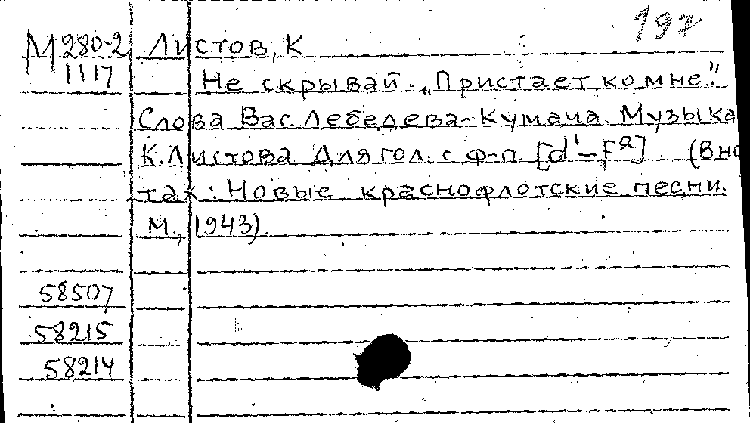 197
М 280-2 Листов, К
1117 Не скрывай. „Пристает ко мне".
Слова Вас Лебедева-Кумача. Музыка
К. Листова Для гол. с ф-п. [d¹-f²] (В но
тах: Новые краснофлотские песни.
М., 1943).
58507
58215
58214